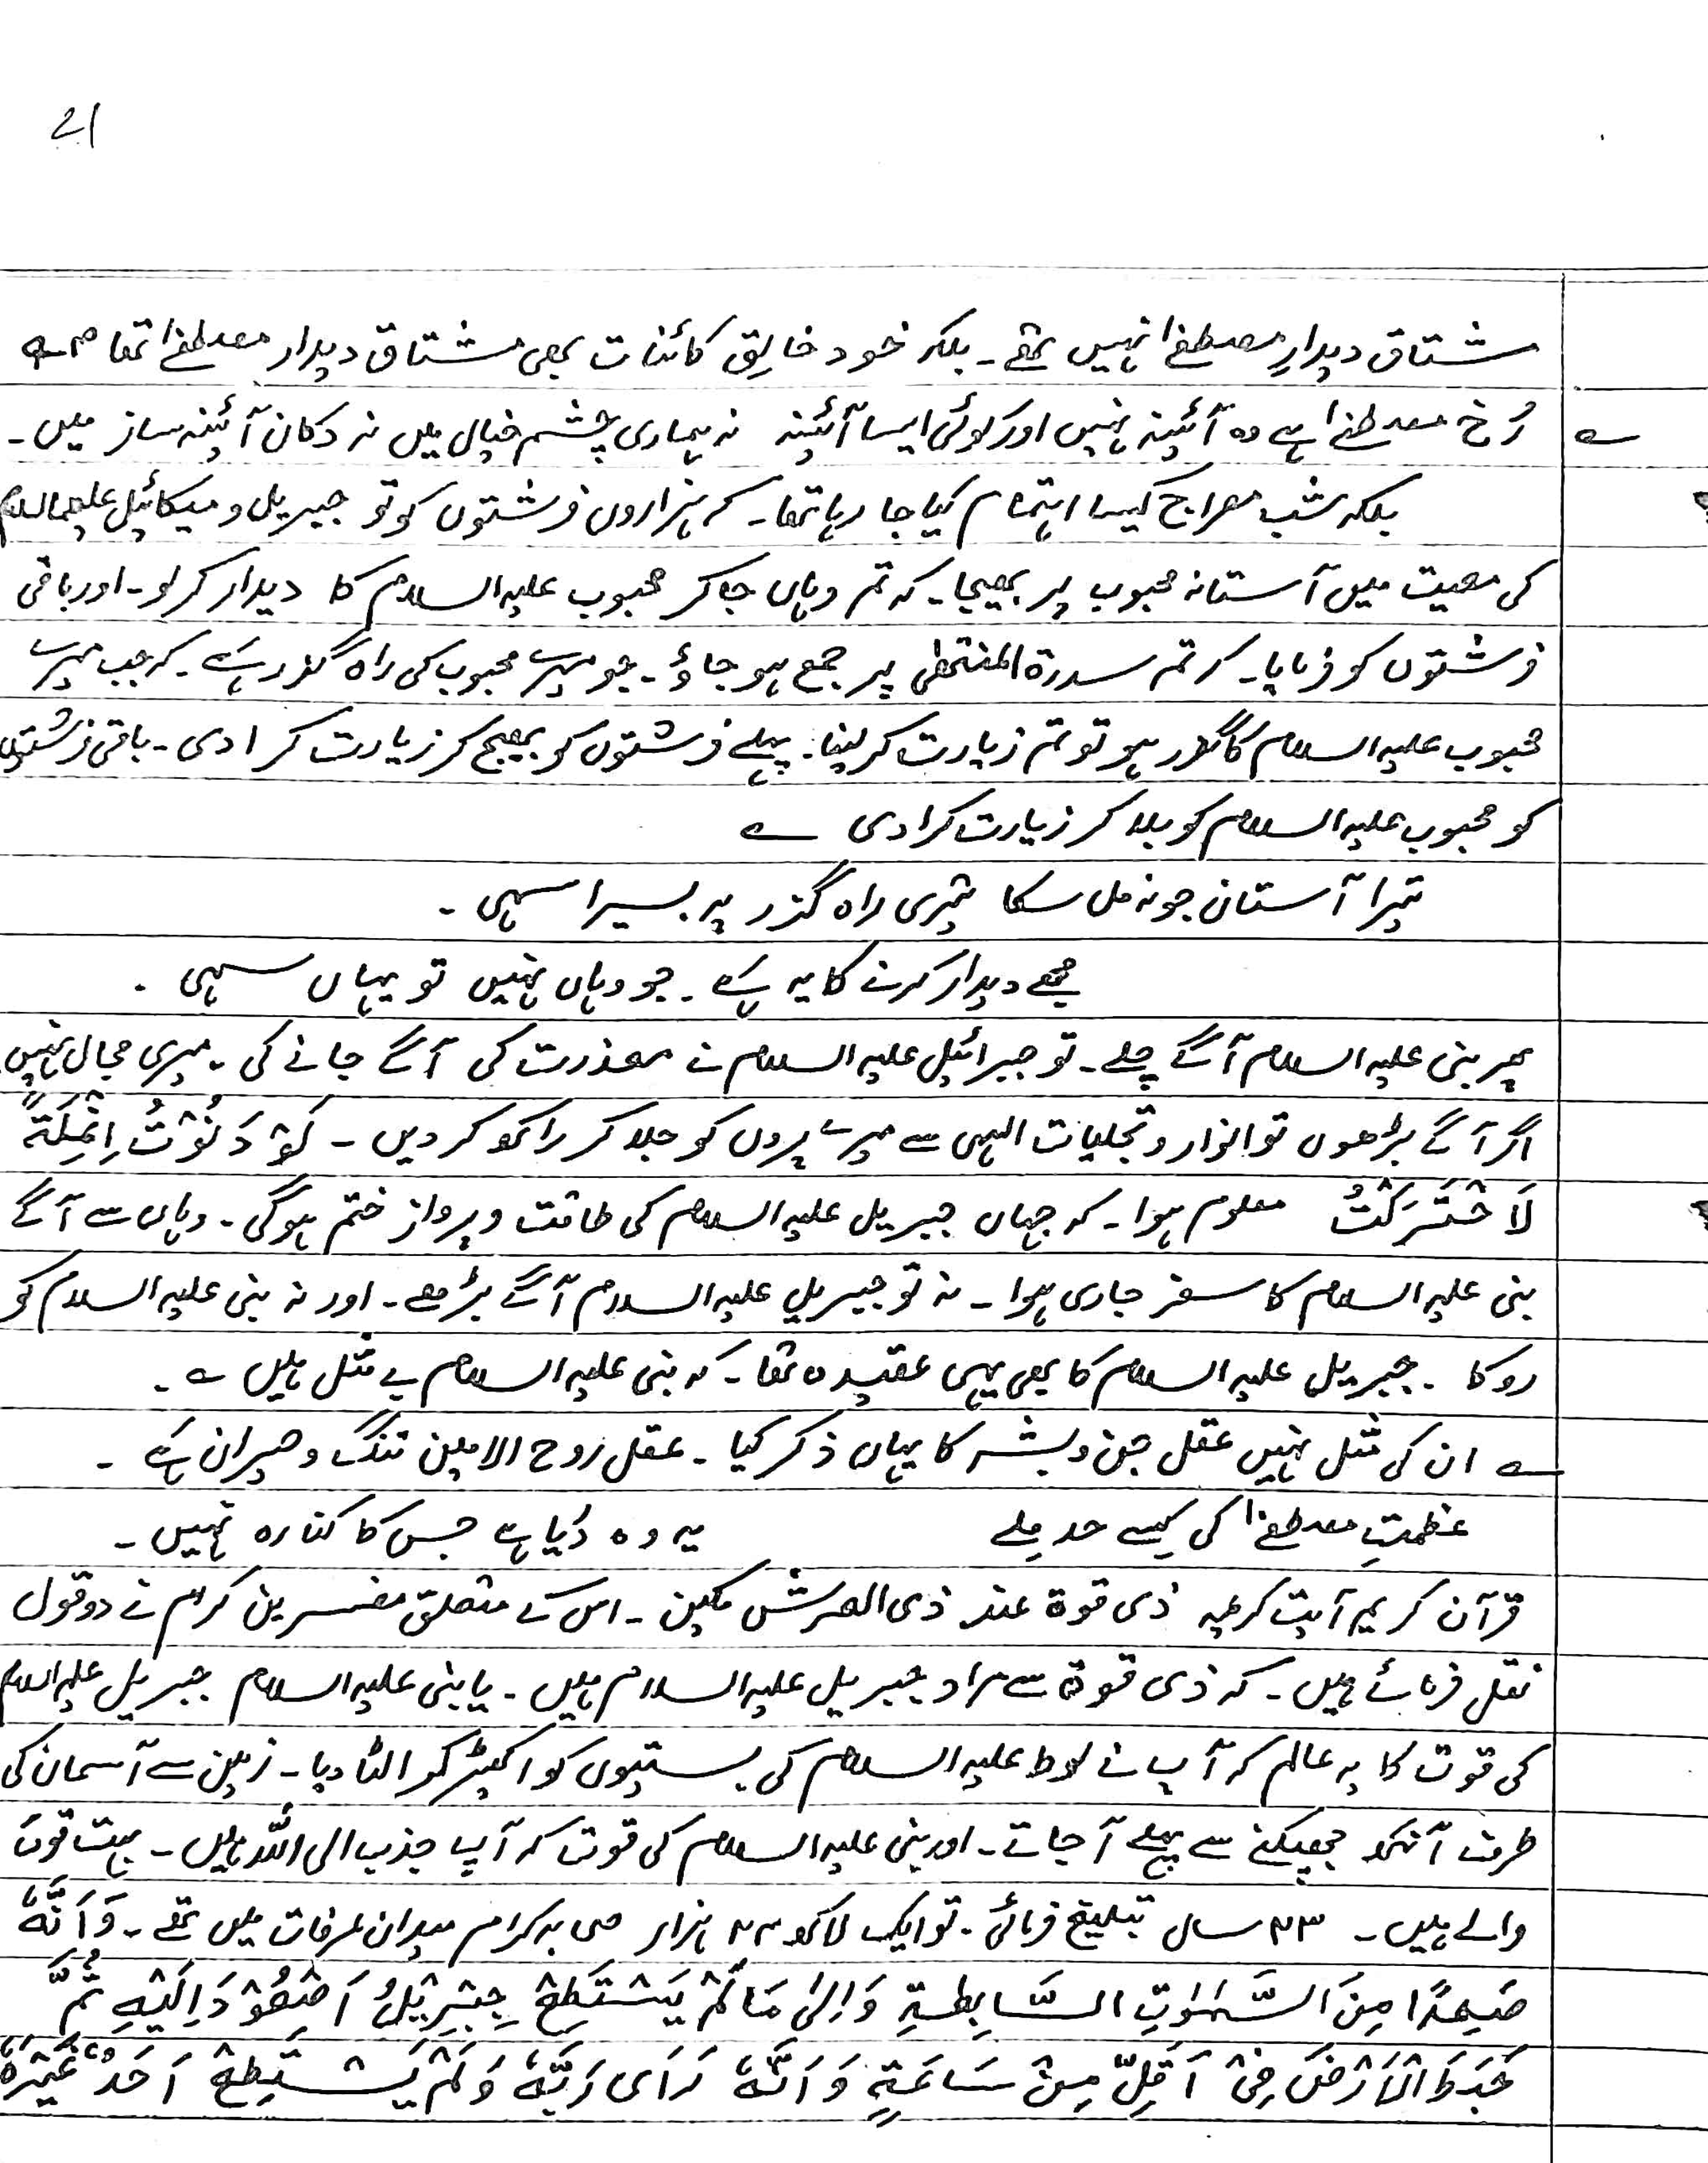 21
مشتاق دیدارِ مصطفےٰ نہیں تھے۔ بلکہ خود خالِق کائنات بھی مشتاق دیدار مصطفےٰ تھا
رُخ مصطفےٰ ہے وہ آئینہ نہیں اور کوئی ایسا آئینہ نہ ہماری چشم خیال میں نہ دکان آئینہ ساز میں۔
بلکہ شب معراج کیسا اہتمام کیا جا رہا تھا۔ کہ ہزاروں فرشتوں کو تو جبریل و میکائیل علیھما السلام
کی معیت میں آستانہ محبوب پر بھیجا۔ کہ تم وہاں جا کر محبوب علیہ السلام کا دیدار کر لو۔ اور باقی
فرشتوں کو فرمایا۔ کہ تم سدرۃ المنتھٰی پر جمع ہو جاؤ۔ جو میرے محبوب کی راہ گذر ہے۔ کہ جب میرے
محبوب علیہ السلام کا گذر ہو تو تم زیارت کر لینا۔ پہلے فرشتوں کو بھیج کر زیارت کرا دی۔ باقی فرشتوں
کو محبوب علیہ السلام کو بلا کر زیارت کرا دی ؎
تیرا آستان جو نہ مل سکا تیری راہ گذر پہ بسیرا سہی۔
مجھے دیدار کرنے کا یہ ہے۔ جو وہاں نہیں تو یہاں سہی۔
پھر نبی علیہ السلام آگے چلے۔ تو جبرائیل علیہ السلام نے معذرت کی آگے جانے کی۔ میری مجال نہیں
اگر آگے بڑھوں تو انوار و تجلیات الہی سے میرے پروں کو جلا کر راکھ کر دیں۔ لَوْ دَنُوْتُ اِنْمِلَۃً
لَا حْتَرَکْتُ معلوم ہوا۔ کہ جہاں جبریل علیہ السلام کی طاقت و پرواز ختم ہو گی۔ وہاں سے آگے
نبی علیہ السلام کا سفر جاری ہوا۔ نہ تو جبریل علیہ السلام آگے بڑھے۔ اور نہ نبی علیہ السلام کو
روکا۔ جبریل علیہ السلام کا بھی یہی عقیدہ تھا۔ کہ نبی علیہ السلام بے مثل ہیں ؎۔
؎ ان کی مثل نہیں عقل جن و بشر کا یہاں ذکر کیا۔ عقل روح الامین تنگ و حیران ہے۔
عظمتِ مصطفےٰ کی کیسے حد ملے یہ وہ دریا ہے جس کا کنارہ نہیں۔
قرآن کریم آیت کریمہ ذی قوۃ عند ذی العرش مکین۔ اس کے متعلق مفسرین کرام نے دو قول
نقل فرمائے ہیں۔ کہ ذی قوۃ سے مراد جبریل علیہ السلام ہیں۔ یا نبی علیہ السلام جبریل علیہ السلام
کی قوت کا یہ عالم کہ آپ نے لوط علیہ السلام کی بستیوں کو اکھیڑ کر الٹا دیا۔ زمین سے آسمان کی
طرف آنکھ جھپکنے سے پہلے آ جاتے۔ اور نبی علیہ السلام کی قوت کہ آپ جذب الی اللہ ہیں۔ بہت قوت
والے ہیں۔ ۲۳ سال تبلیغ فرمائی۔ تو ایک لاکھ ۲۴ ہزار صحابہ کرام میدان عرفات میں تھے۔ وَاَنَّہٗ
صَعِدًا مِنَ السَّمٰوٰتِ السَّابِطۃِ وَاِلیٰ مَا لَمْ یَسْتَطِعْ جِبْرِیْلُ اَصْعُوْدَاِلَیْہِ ثُمَّ
ھَبَطَ الْاَرْضَ فِیْ اَقَلِّ مِنْ سَاعَۃٍ وَاَنَّہٗ رَاَی رَبَّہٗ وَلَمْ یَسْتَطِعْ اَحَدٌ غَیْرَہٗ